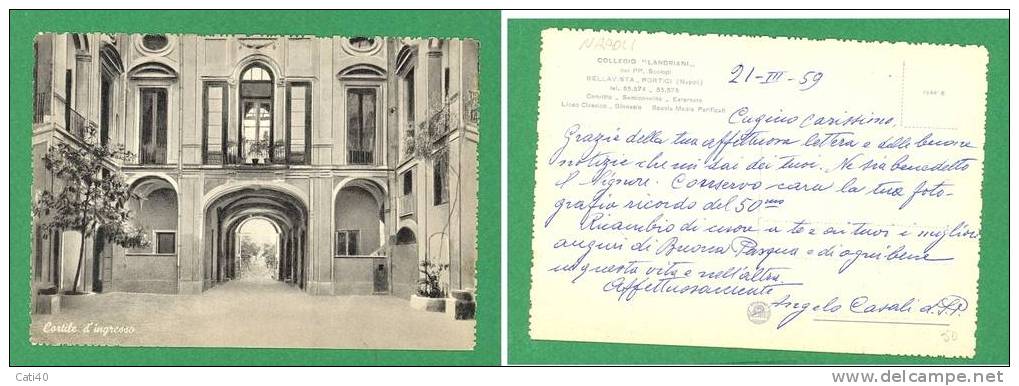 Cortile d'ingresso
NAPOLI
COLLEGIO "LANDRIANI"
dei PP. Scolopi
BELLAVISTA PORTICI (Napoli)
Convitto - Semiconvitto - Esternato
Liceo Classico - Ginnasio Scuola Media Parificati
21-III-59
Cugino carissimo,
Grazie della tua affettuosa lettera e delle buone
notizie che mi dai dei tuoi. Ne sia benedetto
il Signore. Conservo cara la tua foto-
grafia ricordo del 50mo
Ricambio di cuore a te e ai tuoi i migliori
auguri di Buona Pasqua e di ogni bene
in questa vita e nell'altra
Affettuosamente
Angelo Casali d.S.P.
50
Cati40
www.delcampe.net